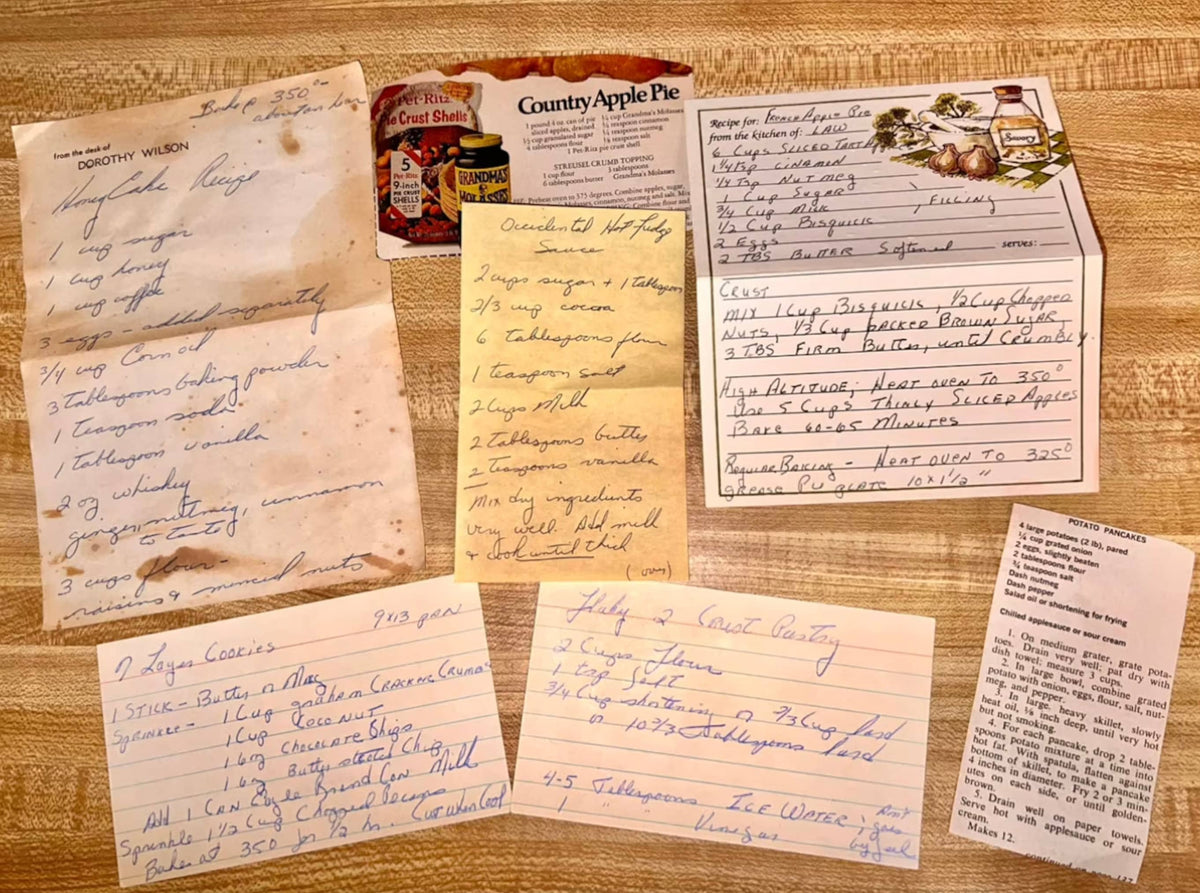 Bake @ 350°
about an hour
from the desk of
DOROTHY WILSON
Honey Cake Recipe
1 cup sugar
1 cup honey
1 cup coffee
3 eggs - added separately
3/4 cup Corn oil
3 tablespoons baking powder
1 teaspoon soda
1 tablespoon vanilla
2 oz whiskey
ginger, nutmeg, cinnamon
to taste
3 cups flour -
raisins & minced nuts
Pet-Ritz
Pie Crust Shells
5
Pet-Ritz
9-inch
PIE CRUST
SHELLS
GRANDMA'S
MOLASSES
Country Apple Pie
1 pound 4 oz. can of pie
sliced apples, drained
1/2 cup granulated sugar
4 tablespoons flour
1/4 cup Grandma's Molasses
1/2 teaspoon cinnamon
1/4 teaspoon nutmeg
1/4 teaspoon salt
1 Pet-Ritz pie crust shell
STREUSEL CRUMB TOPPING
1 cup flour
6 tablespoons butter
3 tablespoons
Grandma's Molasses
Preheat oven to 375 degrees. Combine apples, sugar,
Molasses, cinnamon, nutmeg and salt.
Combine flour and
Occidental Hot Fudge
Sauce
2 cups sugar + 1 tablespoon
2/3 cup cocoa
6 tablespoons flour
1 teaspoon salt
2 cups Milk
2 tablespoons butter
2 Teaspoons vanilla
Mix dry ingredients
very well. Add milk
& cook until thick
(over)
Recipe for: FRENCH APPLE PIE
from the kitchen of: LAW
Savory
6 CUPS SLICED TART
1 1/4 TSP CINAMIN
1/4 TSP NUTMEG
1 CUP SUGAR
3/4 CUP MILK , FILLING
1/2 CUP BISQUICK
2 EGGS
2 TBS BUTTER SOFTENED
serves:
CRUST
MIX 1 CUP BISQUICK, 1/2 CUP CHOPPED
NUTS, 1/3 CUP PACKED BROWN SUGAR,
3 TBS FIRM BUTTER, UNTIL CRUMBLY.
HIGH ALTITUDE; HEAT OVEN TO 350°
USE 5 CUPS THINLY SLICED APPLES
BAKE 60-65 MINUTES
REGULAR BAKING - HEAT OVEN TO 325°
GREASE PIE PLATE 10 x 1 1/2"
7 Layer Cookies
9x13 pan
1 STICK - Butter or Marg
Sprinkle - 1 Cup graham CRACKER CRUMBS
1 Cup COCONUT
1 6oz Chocolate Chips
1 6oz Butter scotch Chips
Add 1 CAN Eagle Brand Con Milk
Sprinkle 1 1/2 Cup Chopped Pecans
Bake at 350 for 1/2 hr. Cut when Cool
Flaky 2 CRUST Pastry
2 Cups flour
1 tsp Salt
3/4 Cup shortening or 2/3 Cup lard
or 10 2/3 Tablespoons lard
4-5 Tablespoons ICE WATER ;
1 " Vinegar
by feel
POTATO PANCAKES
4 large potatoes (2 lb), pared
1/4 cup grated onion
2 eggs, slightly beaten
2 tablespoons flour
3/4 teaspoon salt
Dash nutmeg
Dash pepper
Salad oil or shortening for frying
Chilled applesauce or sour cream
1. On medium grater, grate pota-
toes. Drain very well; pat dry with
dish towel; measure 3 cups.
2. In large bowl, combine grated
potato with onion, eggs, flour, salt, nut-
meg, and pepper.
3. In large, heavy skillet, slowly
heat oil, 1/8 inch deep, until very hot
but not smoking.
4. For each pancake, drop 2 table-
spoons potato mixture at a time into
hot fat. With spatula, flatten against
bottom of skillet, to make a pancake
4 inches in diameter. Fry 2 or 3 min-
utes on each side, or until golden-
brown.
5. Drain well on paper towels.
Serve hot with applesauce or sour
cream.
Makes 12.
continued on page 137